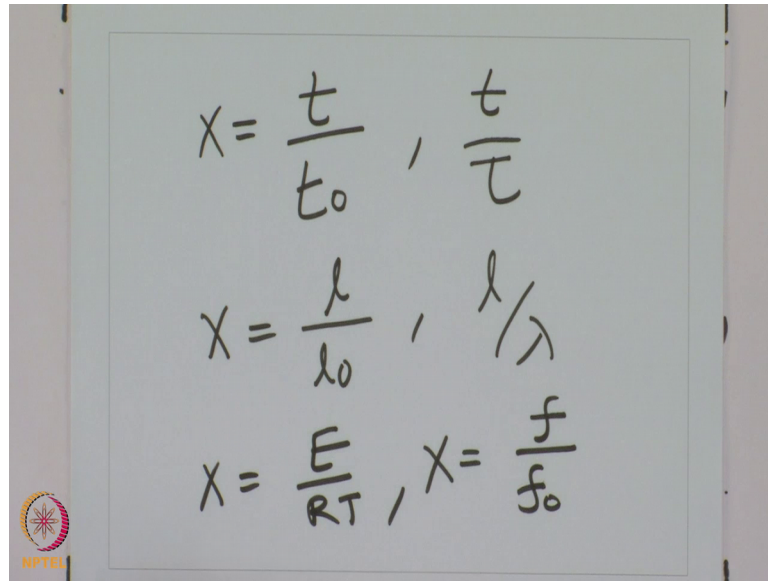 x = t/t₀ , t/τ
x = l/l₀ , l/λ
x = E/RT , x = f/f₀
NPTEL